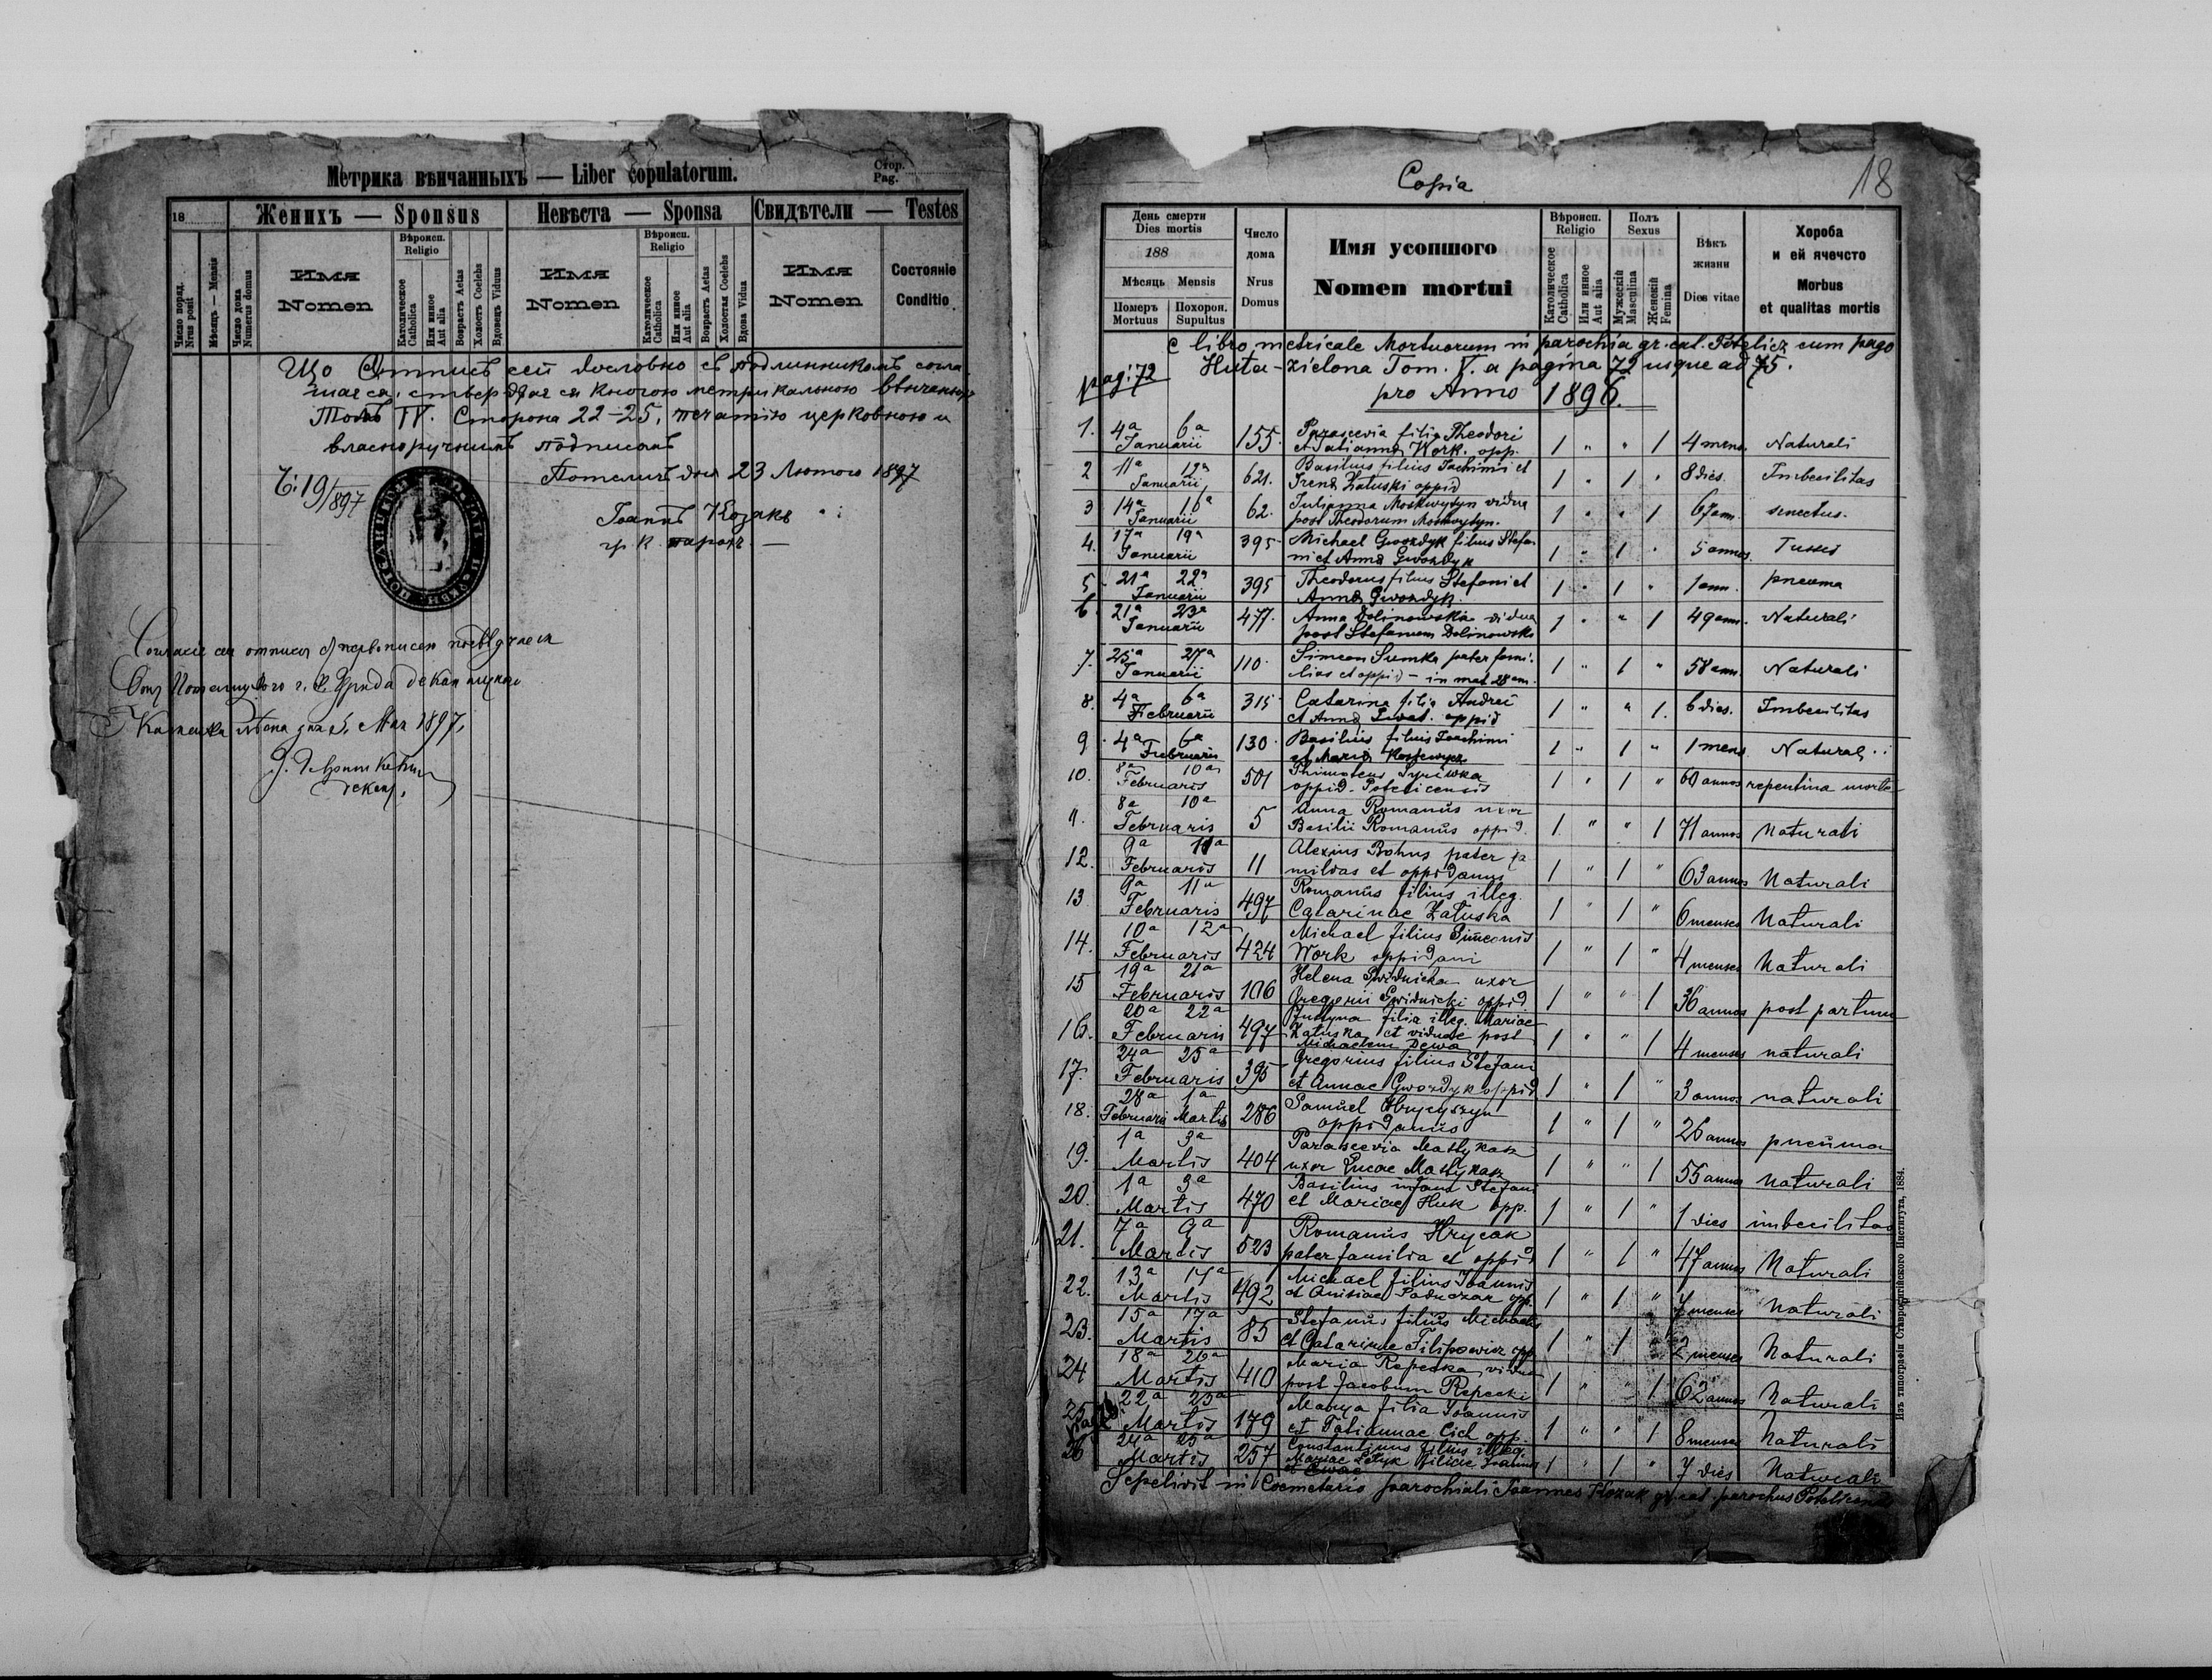 Метрика вѣнчанныхъ — Liber copulatorum.
Стор.
Pag.
18
Женихъ — Sponsus
Невѣста — Sponsa
Свидѣтели — Testes
Число поряд.
Nrus posit
Мѣсяць — Mensis
Число дома
Numerus domus
Имя
Nomen
Вѣроисп.
Religio
Католическое
Catholica
Или иное
Aut alia
Возрастъ Aetas
Холостъ Coelebs
Вдовецъ Viduus
Имя
Nomen
Вѣроисп.
Religio
Католическое
Catholica
Или иное
Aut alia
Возрастъ Aetas
Холостая Coelebs
Вдова Vidua
Имя
Nomen
Состояніе
Conditio
Що Отписъ сей дословно съ подлинникомъ согла
шая ся, стверджая ся книгою метрикальною вѣнчаныхъ
Томъ IV. Сторона 22-25, печатію церковною и
власноручнымъ подписомъ
Потеличъ дня 23 Лютого 1897
Ч: 19/897
Іоаннъ Козакъ
гр. к. парохъ. —
1897
Copia
18
День смерти
Dies mortis
188
Мѣсяць Mensis
Померъ
Mortuus
Похорон.
Supultus
Число
дома
Nrus
Domus
Имя усопшого
Nomen mortui
Вѣроисп.
Religio
Католическое
Catholica
Или инное
Aut alia
Полъ
Sexus
Мужескій
Masculina
Женскій
Femina
Вѣкъ
жизни
Dies vitae
Хороба
и ей ячечсто
Morbus
et qualitas mortis
e libro metricale Mortuorum in parochia gr. cat. Potelicz cum pago
pag: 72 Huta-zielona Tom. V. a pagina 72 usque ad 75.
pro Anno 1896.
1. 4a 6a Januarii 155. Parascevia filia Theodori
et Tatianna Work. opp. 1 " " 1 4 mens. Naturali
2 11a 12a Januarii 621. Basilius filius Joachimi et
Irena Załuski oppid 1 " 1 " 8 dies. Imbecilitas
3 14a 16a Januarii 62. Julianna Moskwytyn vidua
post Theodorum Moskwytyn. 1 " " 1 67 ann. senectus.
4. 17a 19a Januarii 395 Michael Gwozdyk filius Stefa-
ni et Anna Gwozdyk 1 " 1 " 5 annos. Tussis
5 21a 22a Januarii 395 Theodorus filius Stefani et
Anna Gwozdyk. 1 " 1 " 1 ann. pneuma
6. 21a 23a Januarii 477. Anna Dolinowska vidua
post Stefanum Dolinowski 1 " " 1 49 ann. Naturali
7. 25a 27a Januarii 110. Simeon Sumka pater fami-
lias et oppid - in mat 28 ann. 1 " 1 " 58 ann. Naturali
8. 4a 6a Februarii 315 Catarina filia Andrei
et Anna oppid 1 " " 1. 6 dies. Imbecilitas
9 4a 6a Februaris 130. Basilius filius Joachimi
et Maria 1 " 1 " 1 mens. Natural
10. 8a 10a Februaris 501 Thimoteus Syriwka
oppid. Potelicensis 1 " 1 " 60 annos repentina morte
11. 8a 10a Februaris 5 Anna Romanus uxor
Basilii Romanus oppid. 1 " " 1 71 annos Naturali
12. 9a 11a Februaris 11 Alexius Bohus pater fa
milias et oppidanus 1 " 1 " 63 annos Naturali
13 9a 11a Februaris 497 Romanus filius illeg.
Catarinae Załuska 1 " 1 " 6 menses Naturali
14. 10a 12a Februaris 424 Michael filius Simeonis
Work oppidani 1 " 1 " 4 menses Naturali
15 19a 21a Februaris 106 Helena Swidnicka uxor
Gregorii Swidnicki oppid 1 " " 1 36 annos post partum
16. 20a 22a Februaris 497 Justyna filia illeg. Mariae
Załuska et viduae post
Michaelem Dewa 1 " " 1 4 menses naturali
17. 24a 25a Februaris 395 Gregorius filius Stefani
et Annae Gwozdyk oppid 1 " 1 " 3 annos naturali
18. 28a 1a Februaris Martis 286 Samuel Hrycyszyn
oppidanus 1 " 1 " 26 annos pneuma
19. 1a 3a Martis 404 Parascevia Mastykasz
uxor Lucae Mastykasz 1 " " 1 55 annos Naturali
20. 1a 3a Martis 470 Basilius infans Stefani
et Mariae Huk opp. 1 " 1 " 1 dies imbecilitas
21. 7a 9a Martis 523 Romanus Hrycak
pater familia et oppid 1 " 1 " 47 annos Naturali
22. 13a 14a Martis 492 Michael filius Joannis
et Anisiae Paduczar opp. 1 " 1 " 7 menses Naturali
23. 15a 17a Martis 85 Stefanus filius Michaelis
et Catarinae Filipowicz opp 1 " 1 " 2 menses Naturali
24 18a 20a Martis 410 Maria Repecka vidua
post Jacobum Repecki 1 " " 1 62 annos Naturali
25 22a 23a Martis 179 Marya filia Joannis
et Tatiannae Cicl opp. 1 " " 1 8 menses Naturali
26 24a 25a Martis 257 Constantinus filius illeg.
Mariae filiae Joannis
1 " 1 " 7 dies Naturali
Sepelivit in Coemetario parochiali Joannes Kozak gr. cat. parochus Potelicensis
Изъ типографіи Ставропигійского Института, 1884.